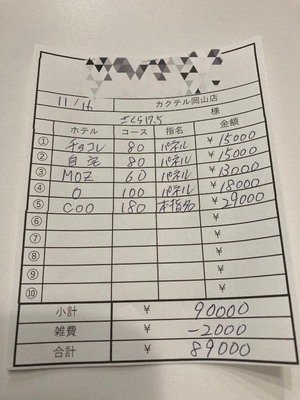 11/16 カクテル岡山店
さくら17.5 様
ホテル コース 指名 金額
① チョコレ 80 パネル ¥15000
② 自宅 80 パネル ¥15000
③ MOZ 60 パネル ¥13000
④ 100 パネル ¥18000
⑤ GOO 180 本指名 ¥29000
⑥ ¥
⑦ ¥
⑧ ¥
⑨ ¥
⑩ ¥
小計 ¥ 90000
雑費 ¥ -2000
合計 ¥ 89000